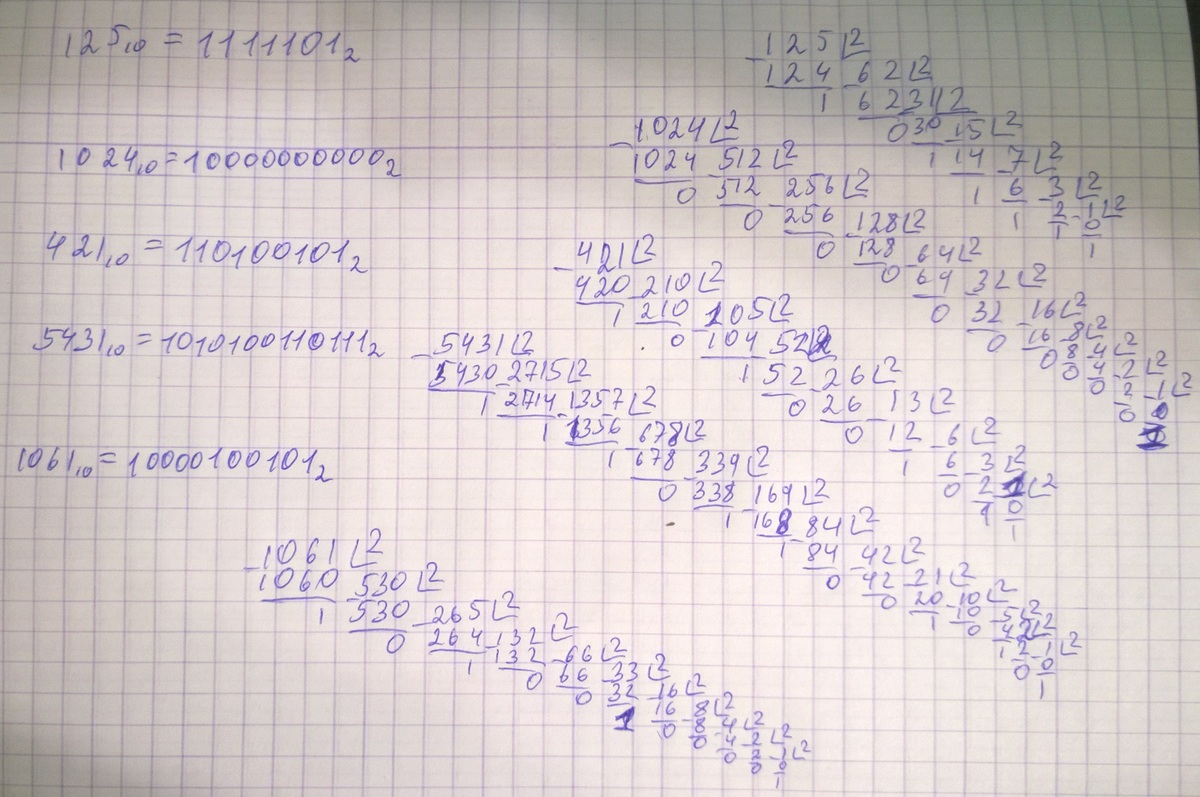 125₁₀ = 1111101₂
1024₁₀ = 10000000000₂
421₁₀ = 110100101₂
5431₁₀ = 1010100110111₂
1061₁₀ = 10000100101₂
125 2
124 62 2
1 62 31 2
0 30 15 2
1 14 7 2
1 6 3 2
1 2 1 2
1 0
1
1024 2
1024 512 2
0 512 256 2
0 256 128 2
0 128 64 2
0 64 32 2
0 32 16 2
0 16 8 2
0 8 4 2
0 4 2 2
0 2 1 2
0 0
1
421 2
420 210 2
1 210 105 2
0 104 52 2
1 52 26 2
0 26 13 2
0 12 6 2
1 6 3 2
0 2 1 2
1 0
1
5431 2
5430 2715 2
1 2714 1357 2
1 1356 678 2
1 678 339 2
0 338 169 2
1 168 84 2
1 84 42 2
0 42 21 2
0 20 10 2
1 10 5 2
0 4 2 2
1 2 1 2
0 0
1
1061 2
1060 530 2
1 530 265 2
0 264 132 2
1 132 66 2
0 66 33 2
0 32 16 2
1 16 8 2
0 8 4 2
0 4 2 2
0 2 1 2
0 0
1